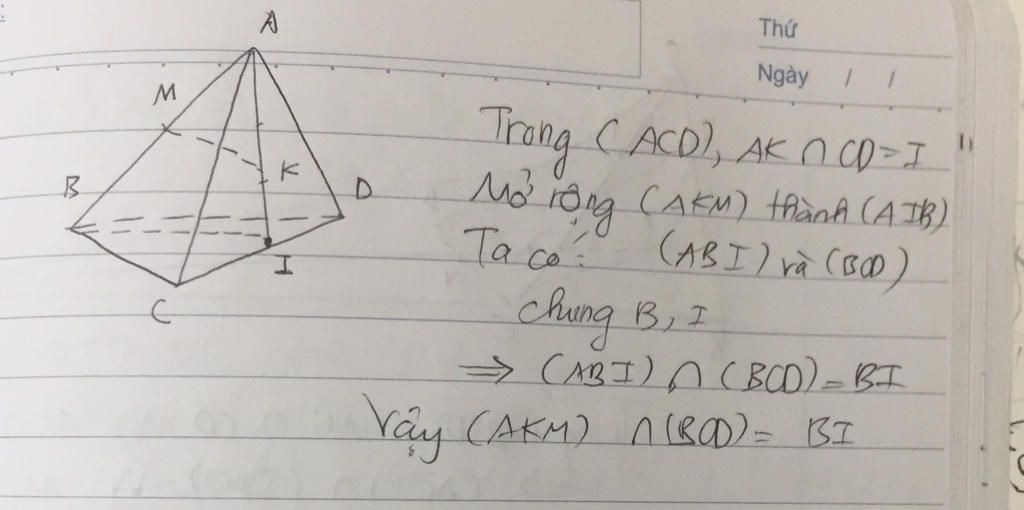 Thứ
Ngày / /
A
M
K
B
D
I
C
Trong (ACD), AK ∩ CD = I
Mở rộng (AKM) thành (AIB)
Ta có: (ABI) và (BCD)
chung B, I
⇒ (ABI) ∩ (BCD) = BI
Vậy (AKM) ∩ (BCD) = BI